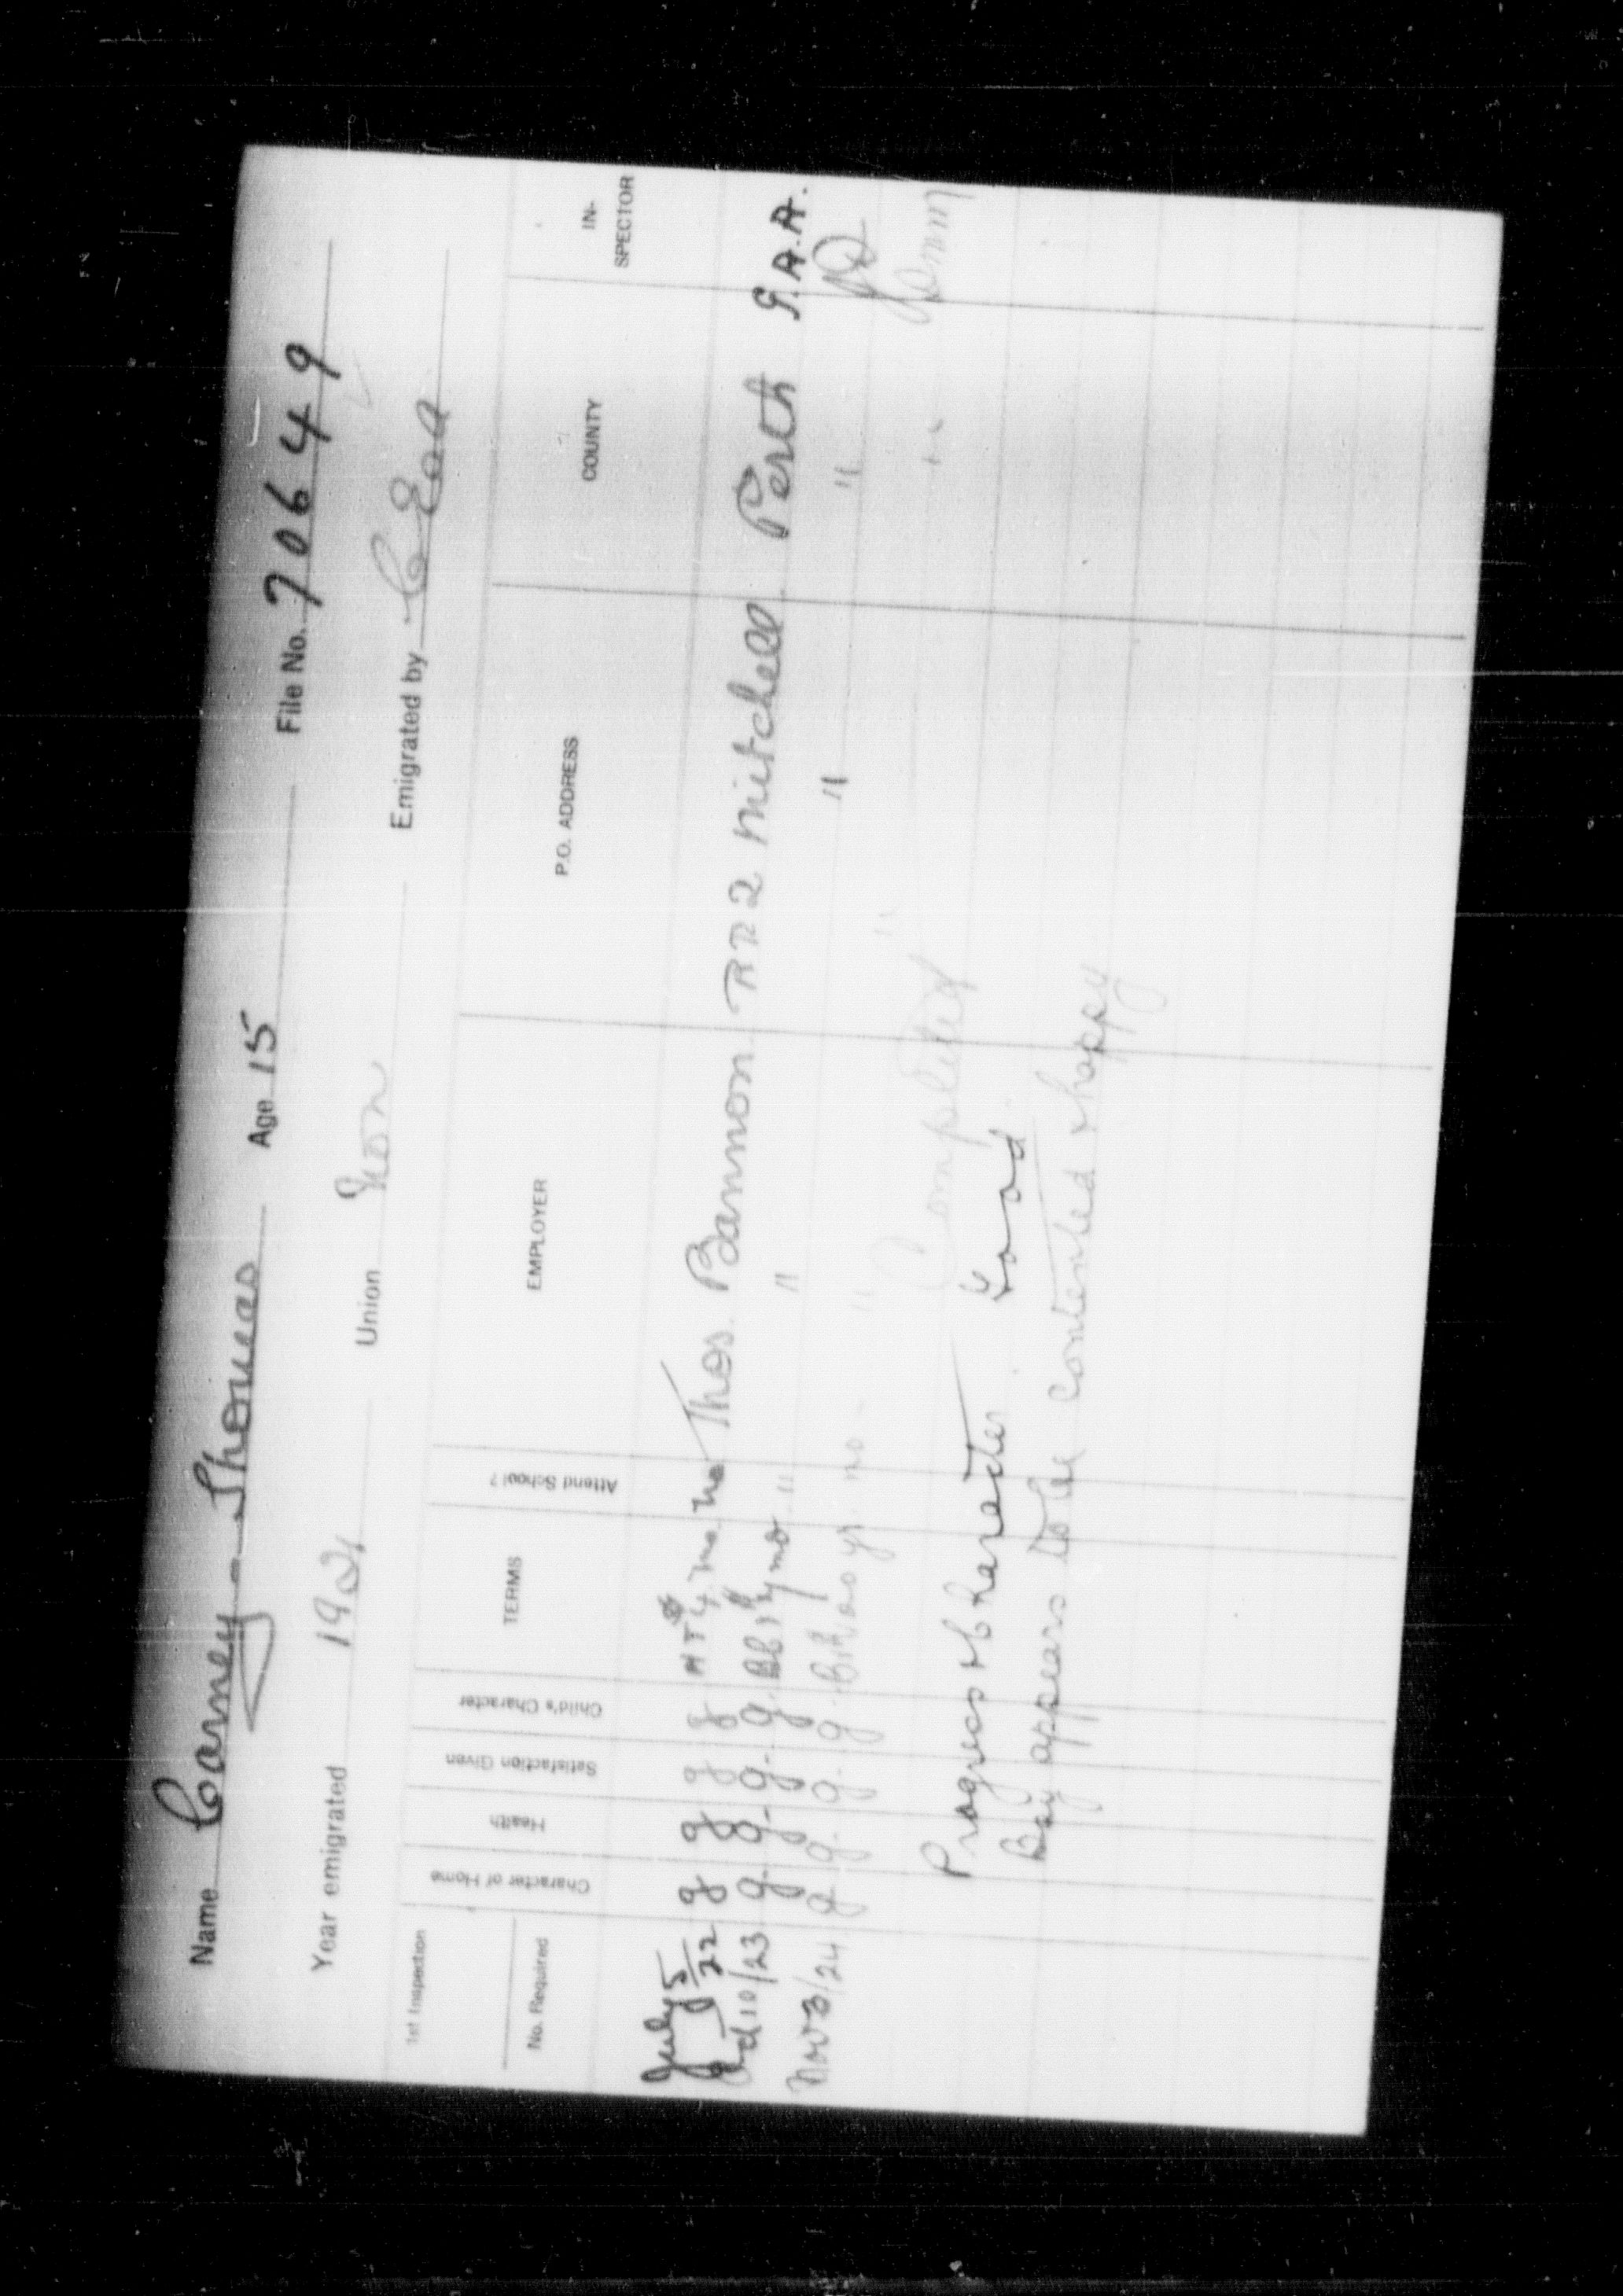 Name Carney - Thomas Age 15 File No. 70649
Year emigrated 1921 Union Non Emigrated by C. E. of
1st Inspection
No. Required
Character of Home
Health
Satisfaction Given
Child's Character
TERMS
Attend School?
EMPLOYER
P.O. ADDRESS
COUNTY
IN-
SPECTOR
July 5/22 g g g g HT 4 mo. no Thos. Bannon RR 2 Mitchell Perth G.A.A.
10/23 g. g. g. g. mo " " " "
Nov 3/24 g g. g. g. yr no - " "
Completed
Progress & Character. Good.
Boy appears to be contented & happy